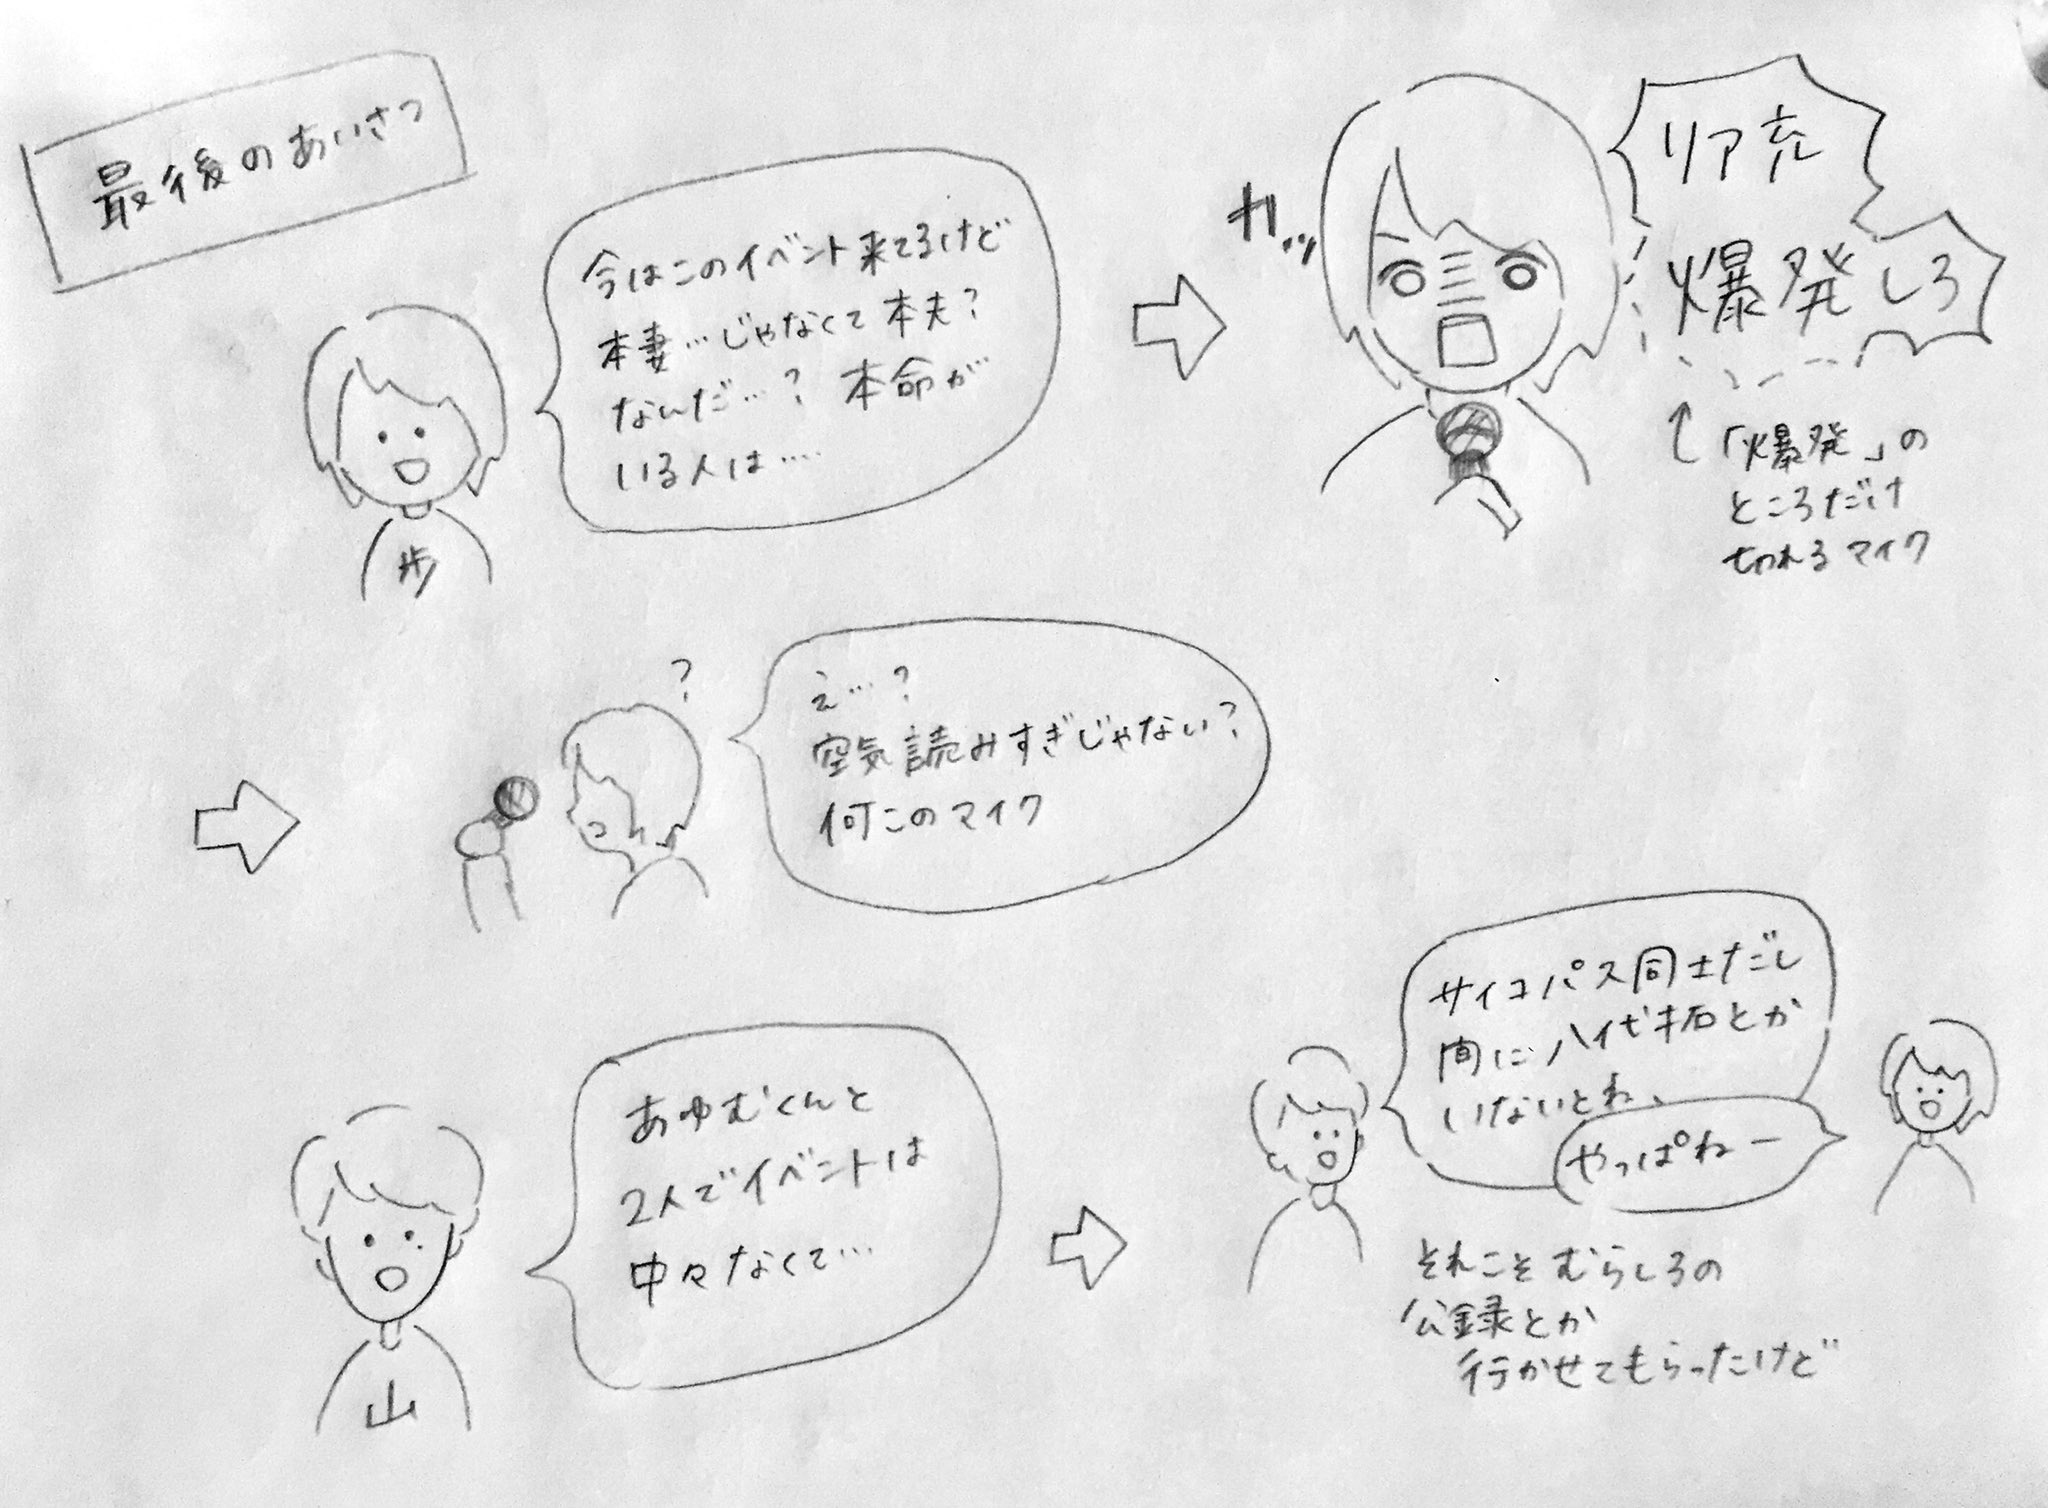 最後のあいさつ
今はこのイベント来てるけど
本妻…じゃなくて本夫?
なんだ…? 本命が
いる人は……
歩
カッ
リア充
爆発しろ
↑「爆発」の
ところだけ
切れるマイク
?
え…?
空気読みすぎじゃない?
何このマイク
あゆむくんと
2人でイベントは
中々なくて…
山
サイコパス同士だし
間にハイゼ柘とか
いないとね、
やっぱねー
それこそむらしろの
公録とか
行かせてもらったけど